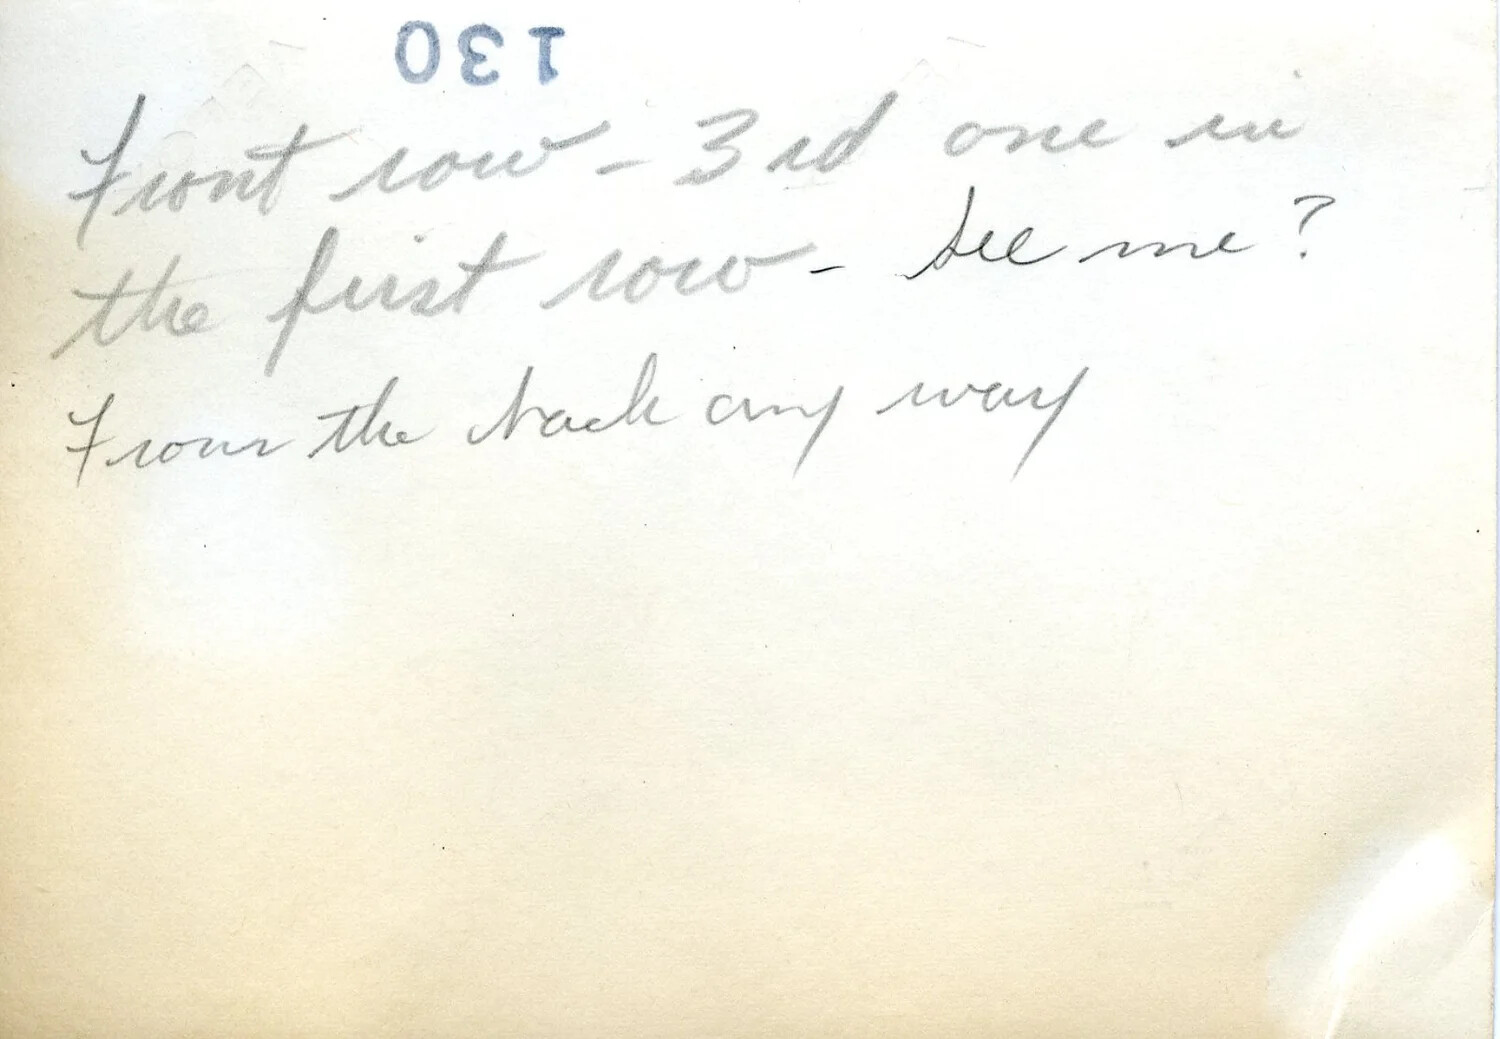 130
Front row - 3rd one in
the first row - see me?
From the back any way